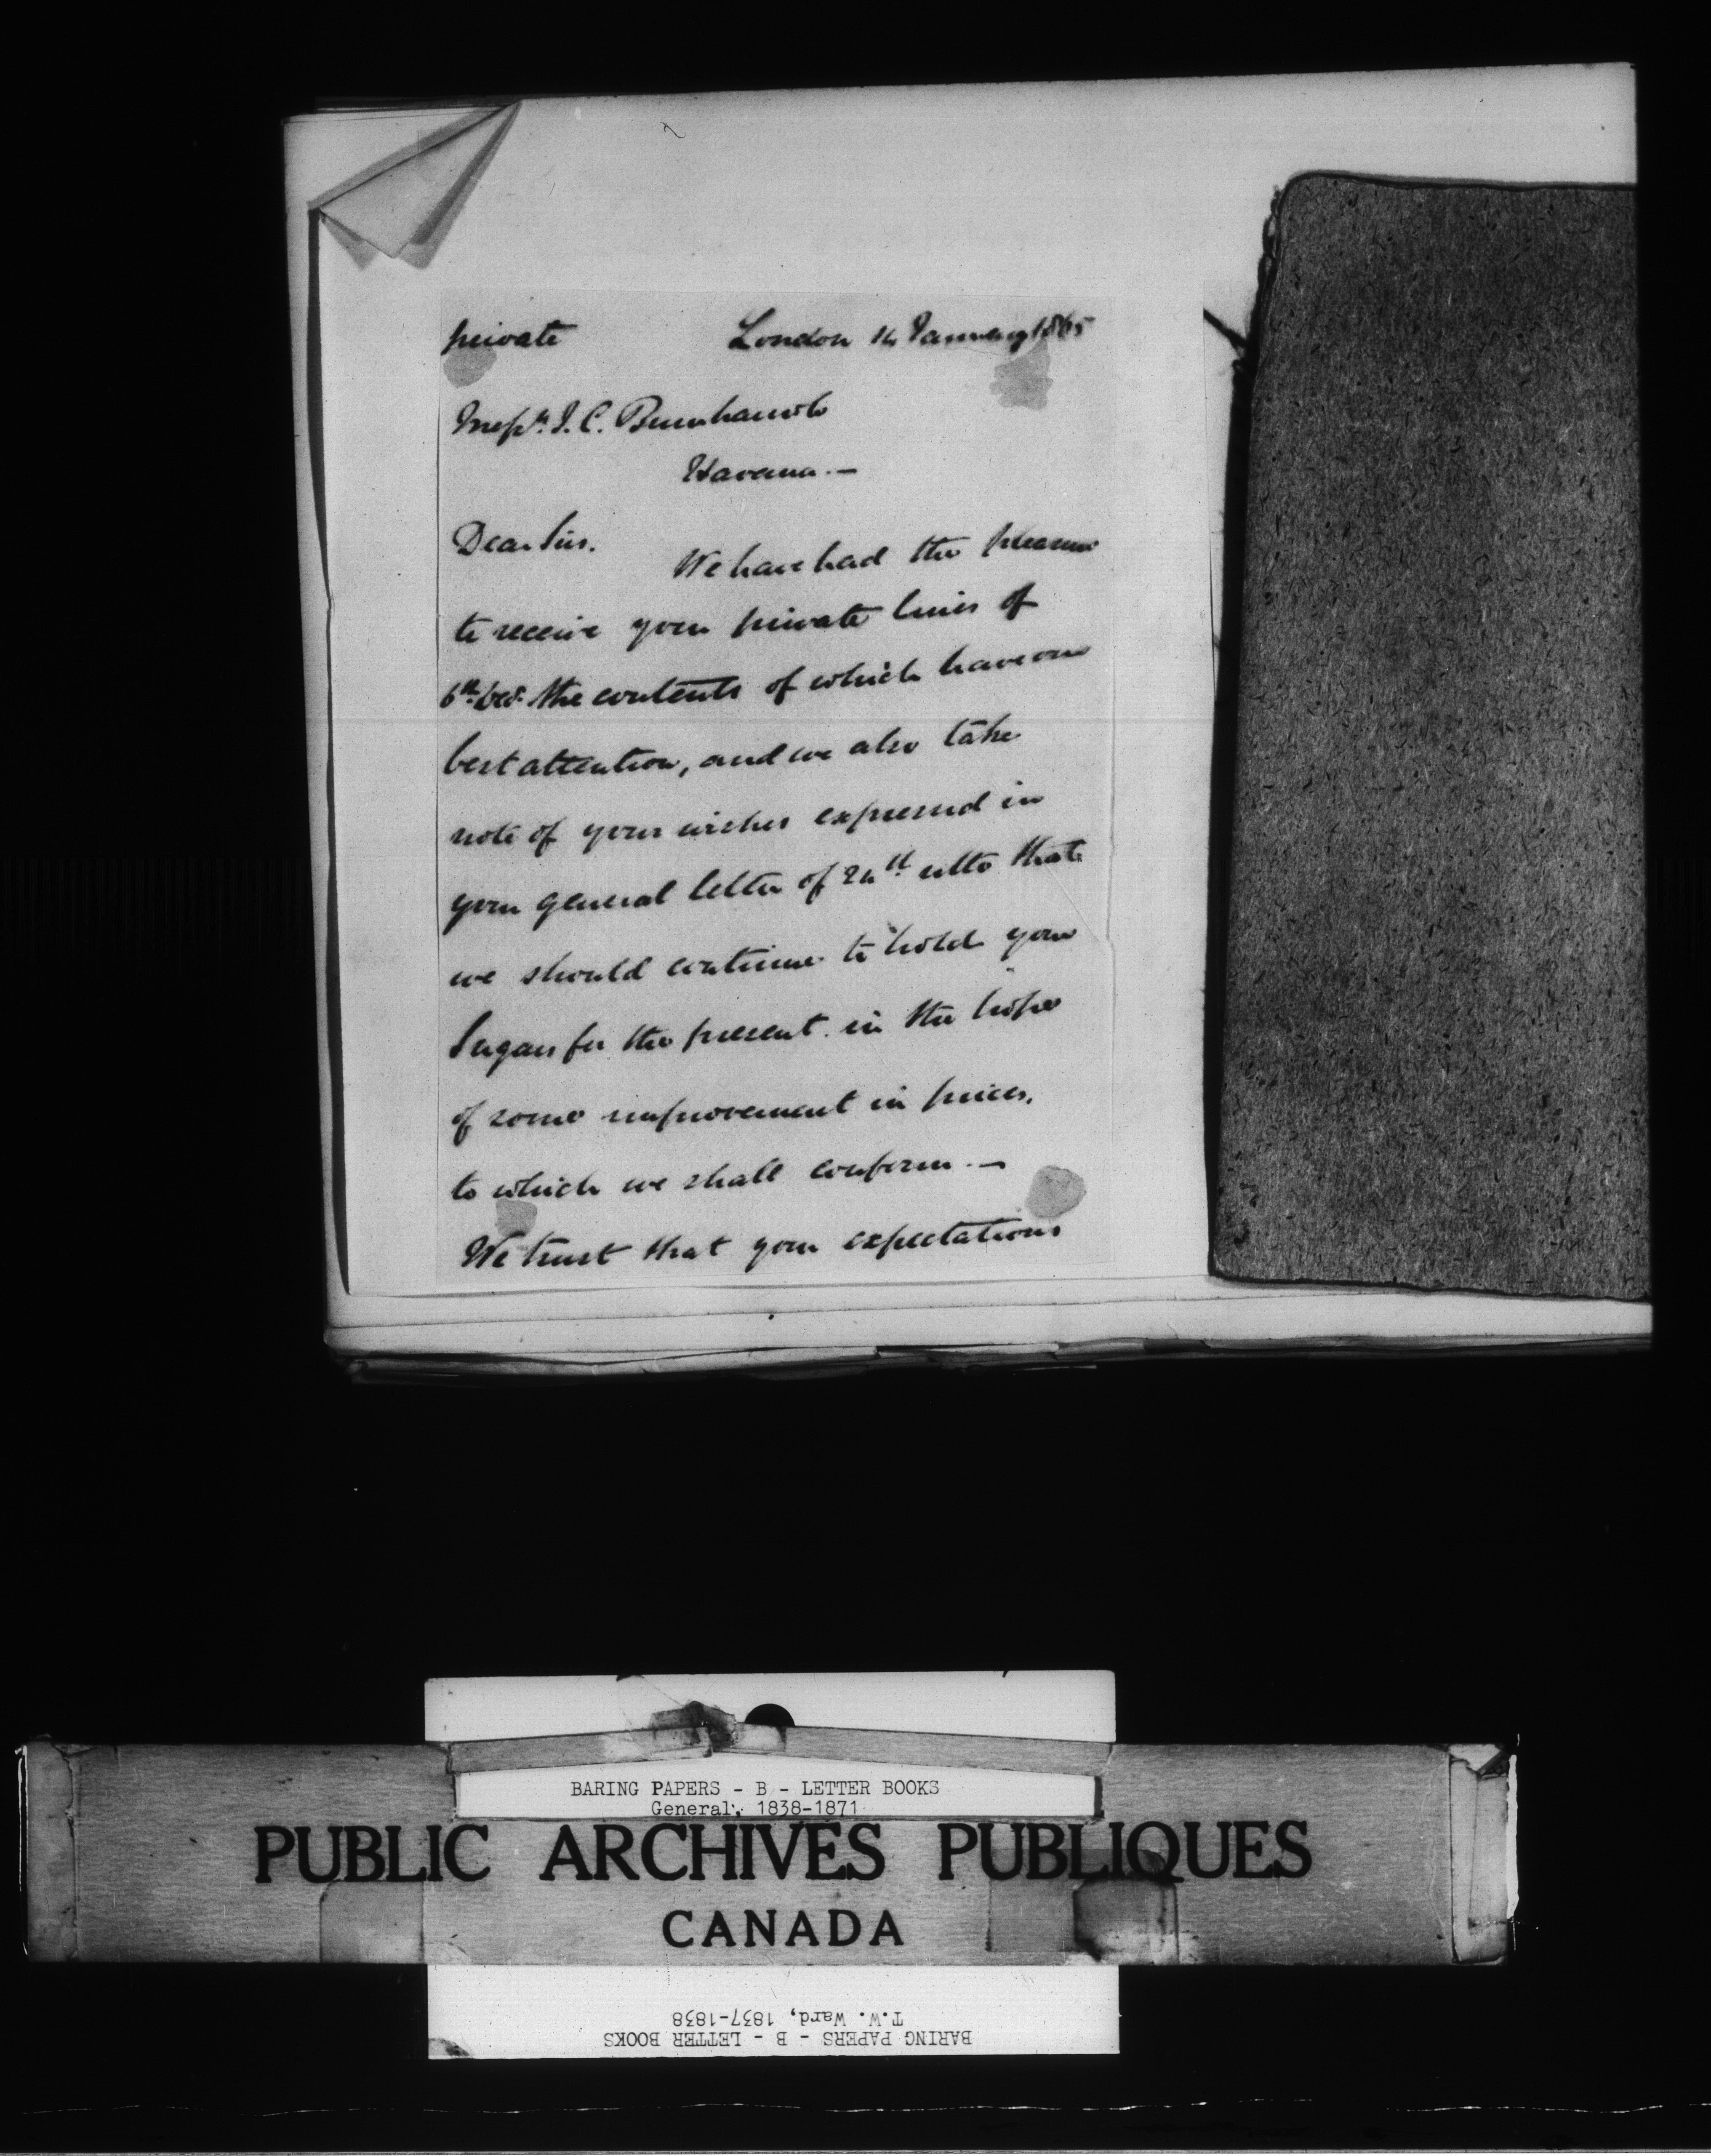 private London 14 January 1865
Messrs. J. C. Burnham & Co
Havana. —
Dear Sirs.
We have had the pleasure
to receive your private lines of
6th Dec. the contents of which have our
best attention, and we also take
note of your wishes expressed in
your general letter of 24th ulto that
we should continue to hold your
Sugars for the present in the hope
of some improvement in prices,
to which we shall conform. —
We trust that your expectations
BARING PAPERS - B - LETTER BOOKS
General, 1838-1871
PUBLIC ARCHIVES PUBLIQUES
CANADA
BARING PAPERS - B - LETTER BOOKS
T.W. Ward, 1837-1838